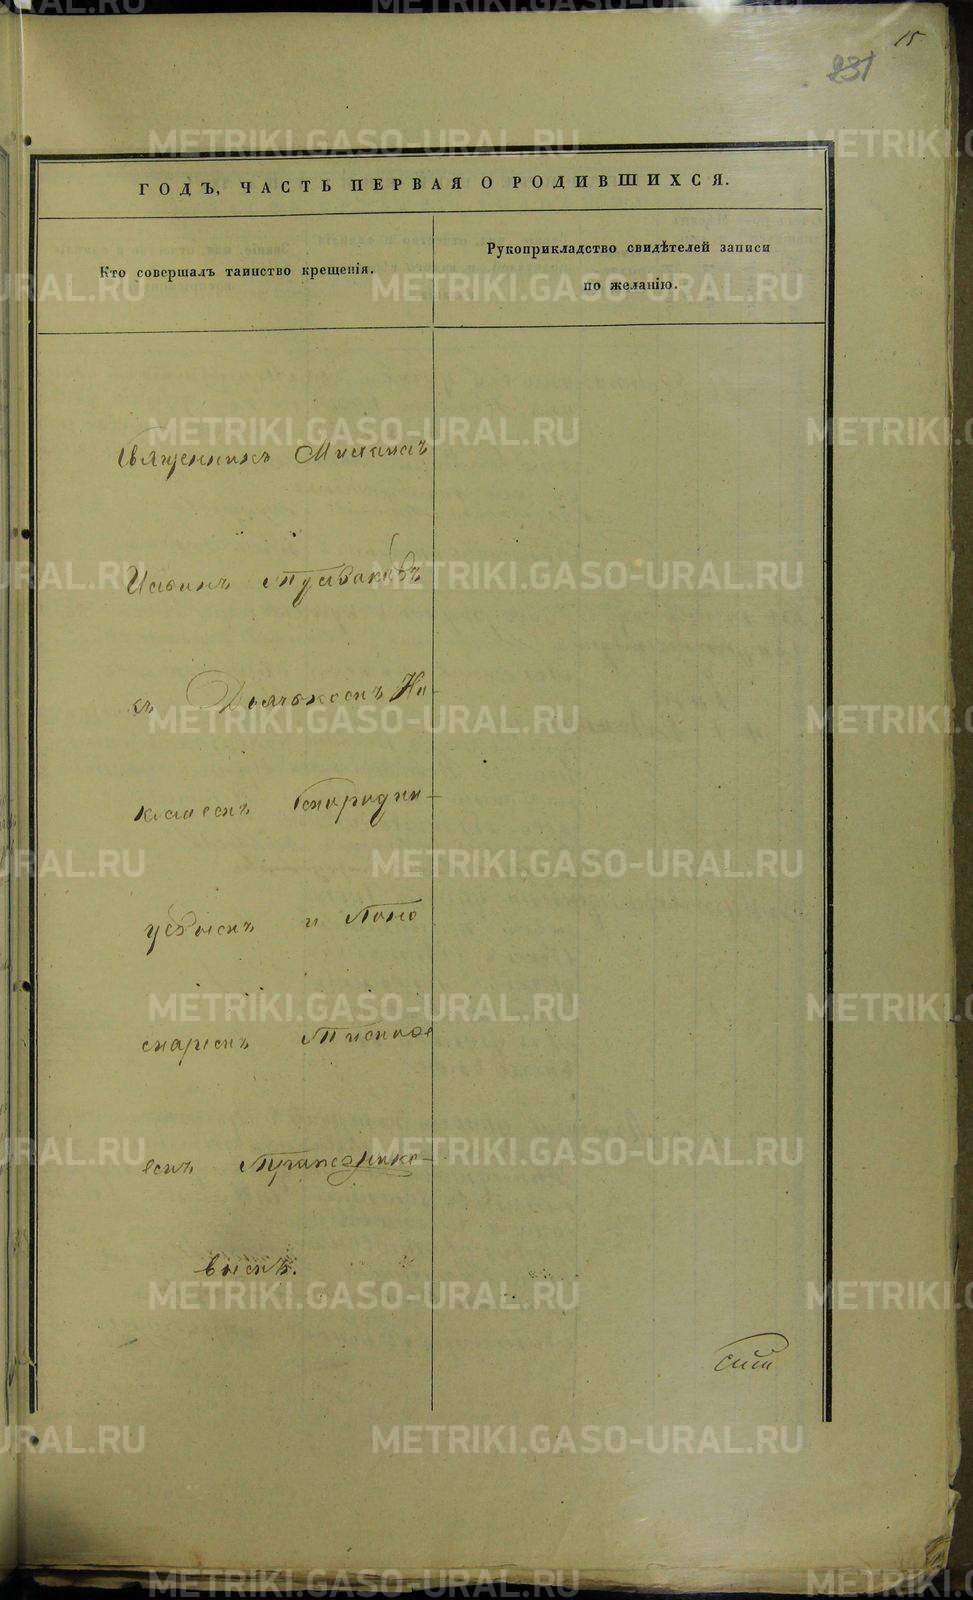 15
231
ГОДЪ, ЧАСТЬ ПЕРВАЯ О РОДИВШИХСЯ.
Кто совершалъ таинство крещенія.
Рукоприкладство свидѣтелей записи
по желанію.
Священникъ Михаилъ
съ Дьячкомъ Ни-
колаемъ Спиридни-
и Поно
маремъ
емъ Трапезнико-
вымъ.
METRIKI.GASO-URAL.RU